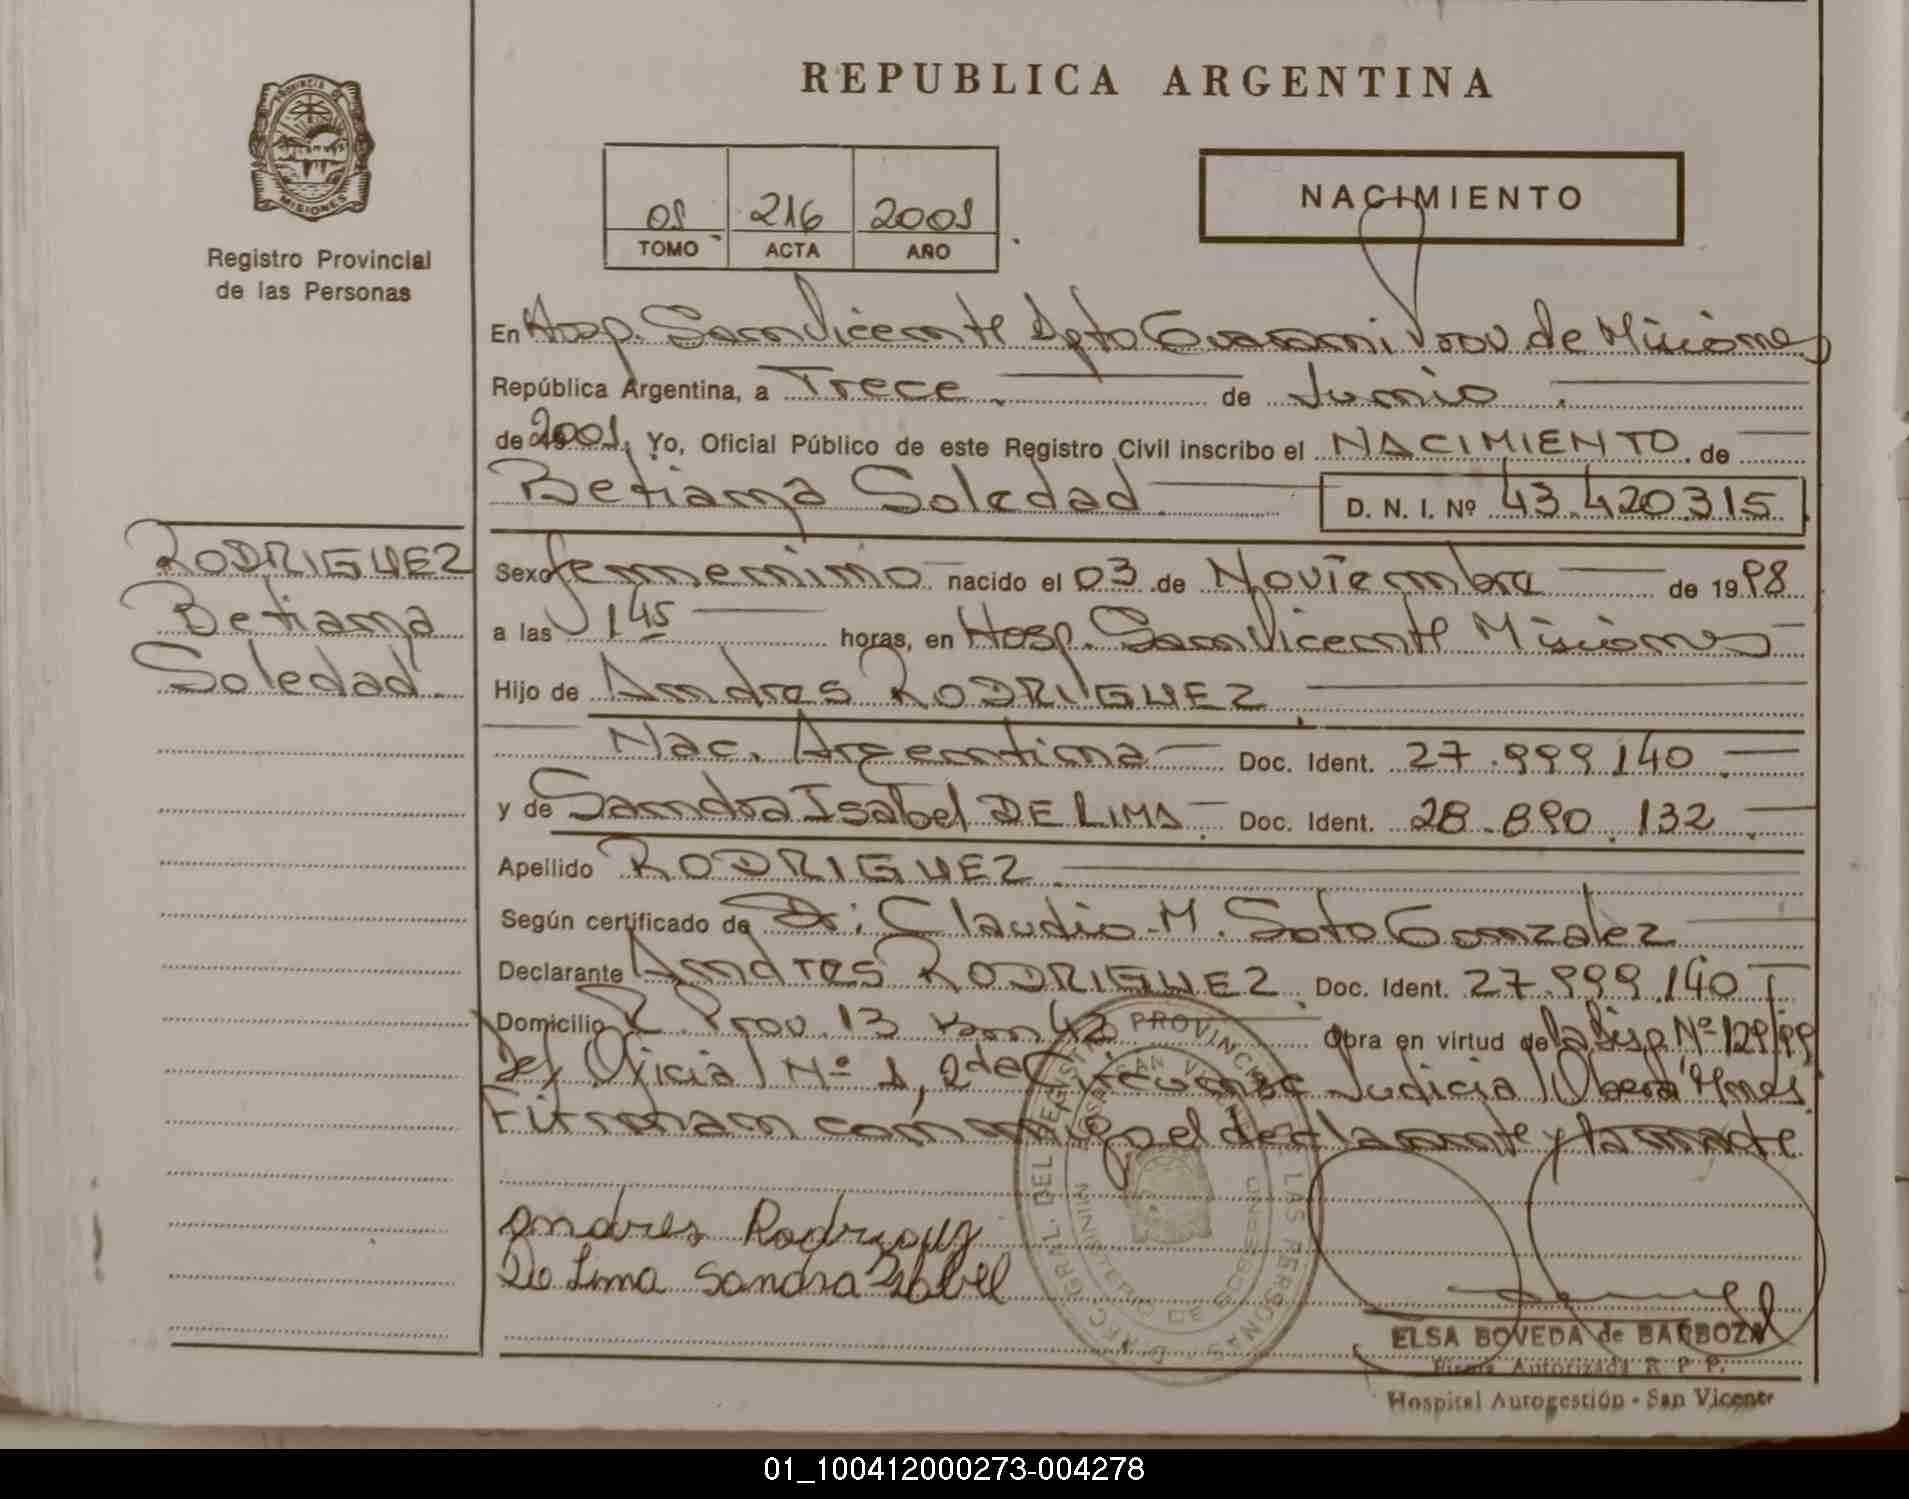 REPUBLICA ARGENTINA
PROVINCIA DE
MISIONES
Registro Provincial
de las Personas
01 216 2001
TOMO ACTA AÑO
NACIMIENTO
En Hosp. San Vicente Dpto Guarani Prov de Misiones
República Argentina, a Trece de Junio
de 2001. Yo, Oficial Público de este Registro Civil inscribo el NACIMIENTO de
Betiana Soledad D. N. I. Nº 43.420.315
RODRIGUEZ
Betiana
Soledad
Sexo femenino nacido el 03 de Noviembre de 1998
a las 1,45 horas, en Hosp. San Vicente Misiones
Hijo de Andres RODRIGUEZ
Nac. Argentina Doc. Ident. 27.999.140
y de Sandra Isabel DE LIMA Doc. Ident. 28.890.132
Apellido RODRIGUEZ
Según certificado de Dr: Claudio M. Soto Gonzalez
Declarante Andres RODRIGUEZ Doc. Ident. 27.999.140
Domicilio R. Prov. 13 km 42 Obra en virtud de la Disp. Nº 129/99
Def Oficial Nº 1, 2da Circunsc Judicial Oberá Mnes.
Firman conmigo el declarante y la madre
Andres Rodriguez
De Lima Sandra Isabel
REGISTRO PROVINCIAL DE LAS PERSONAS
MINISTERIO DE GOBIERNO
ELSA BOVEDA de BARBOZA
Firma Autorizada R. P. P.
Hospital Autogestión - San Vicente
01_100412000273-004278